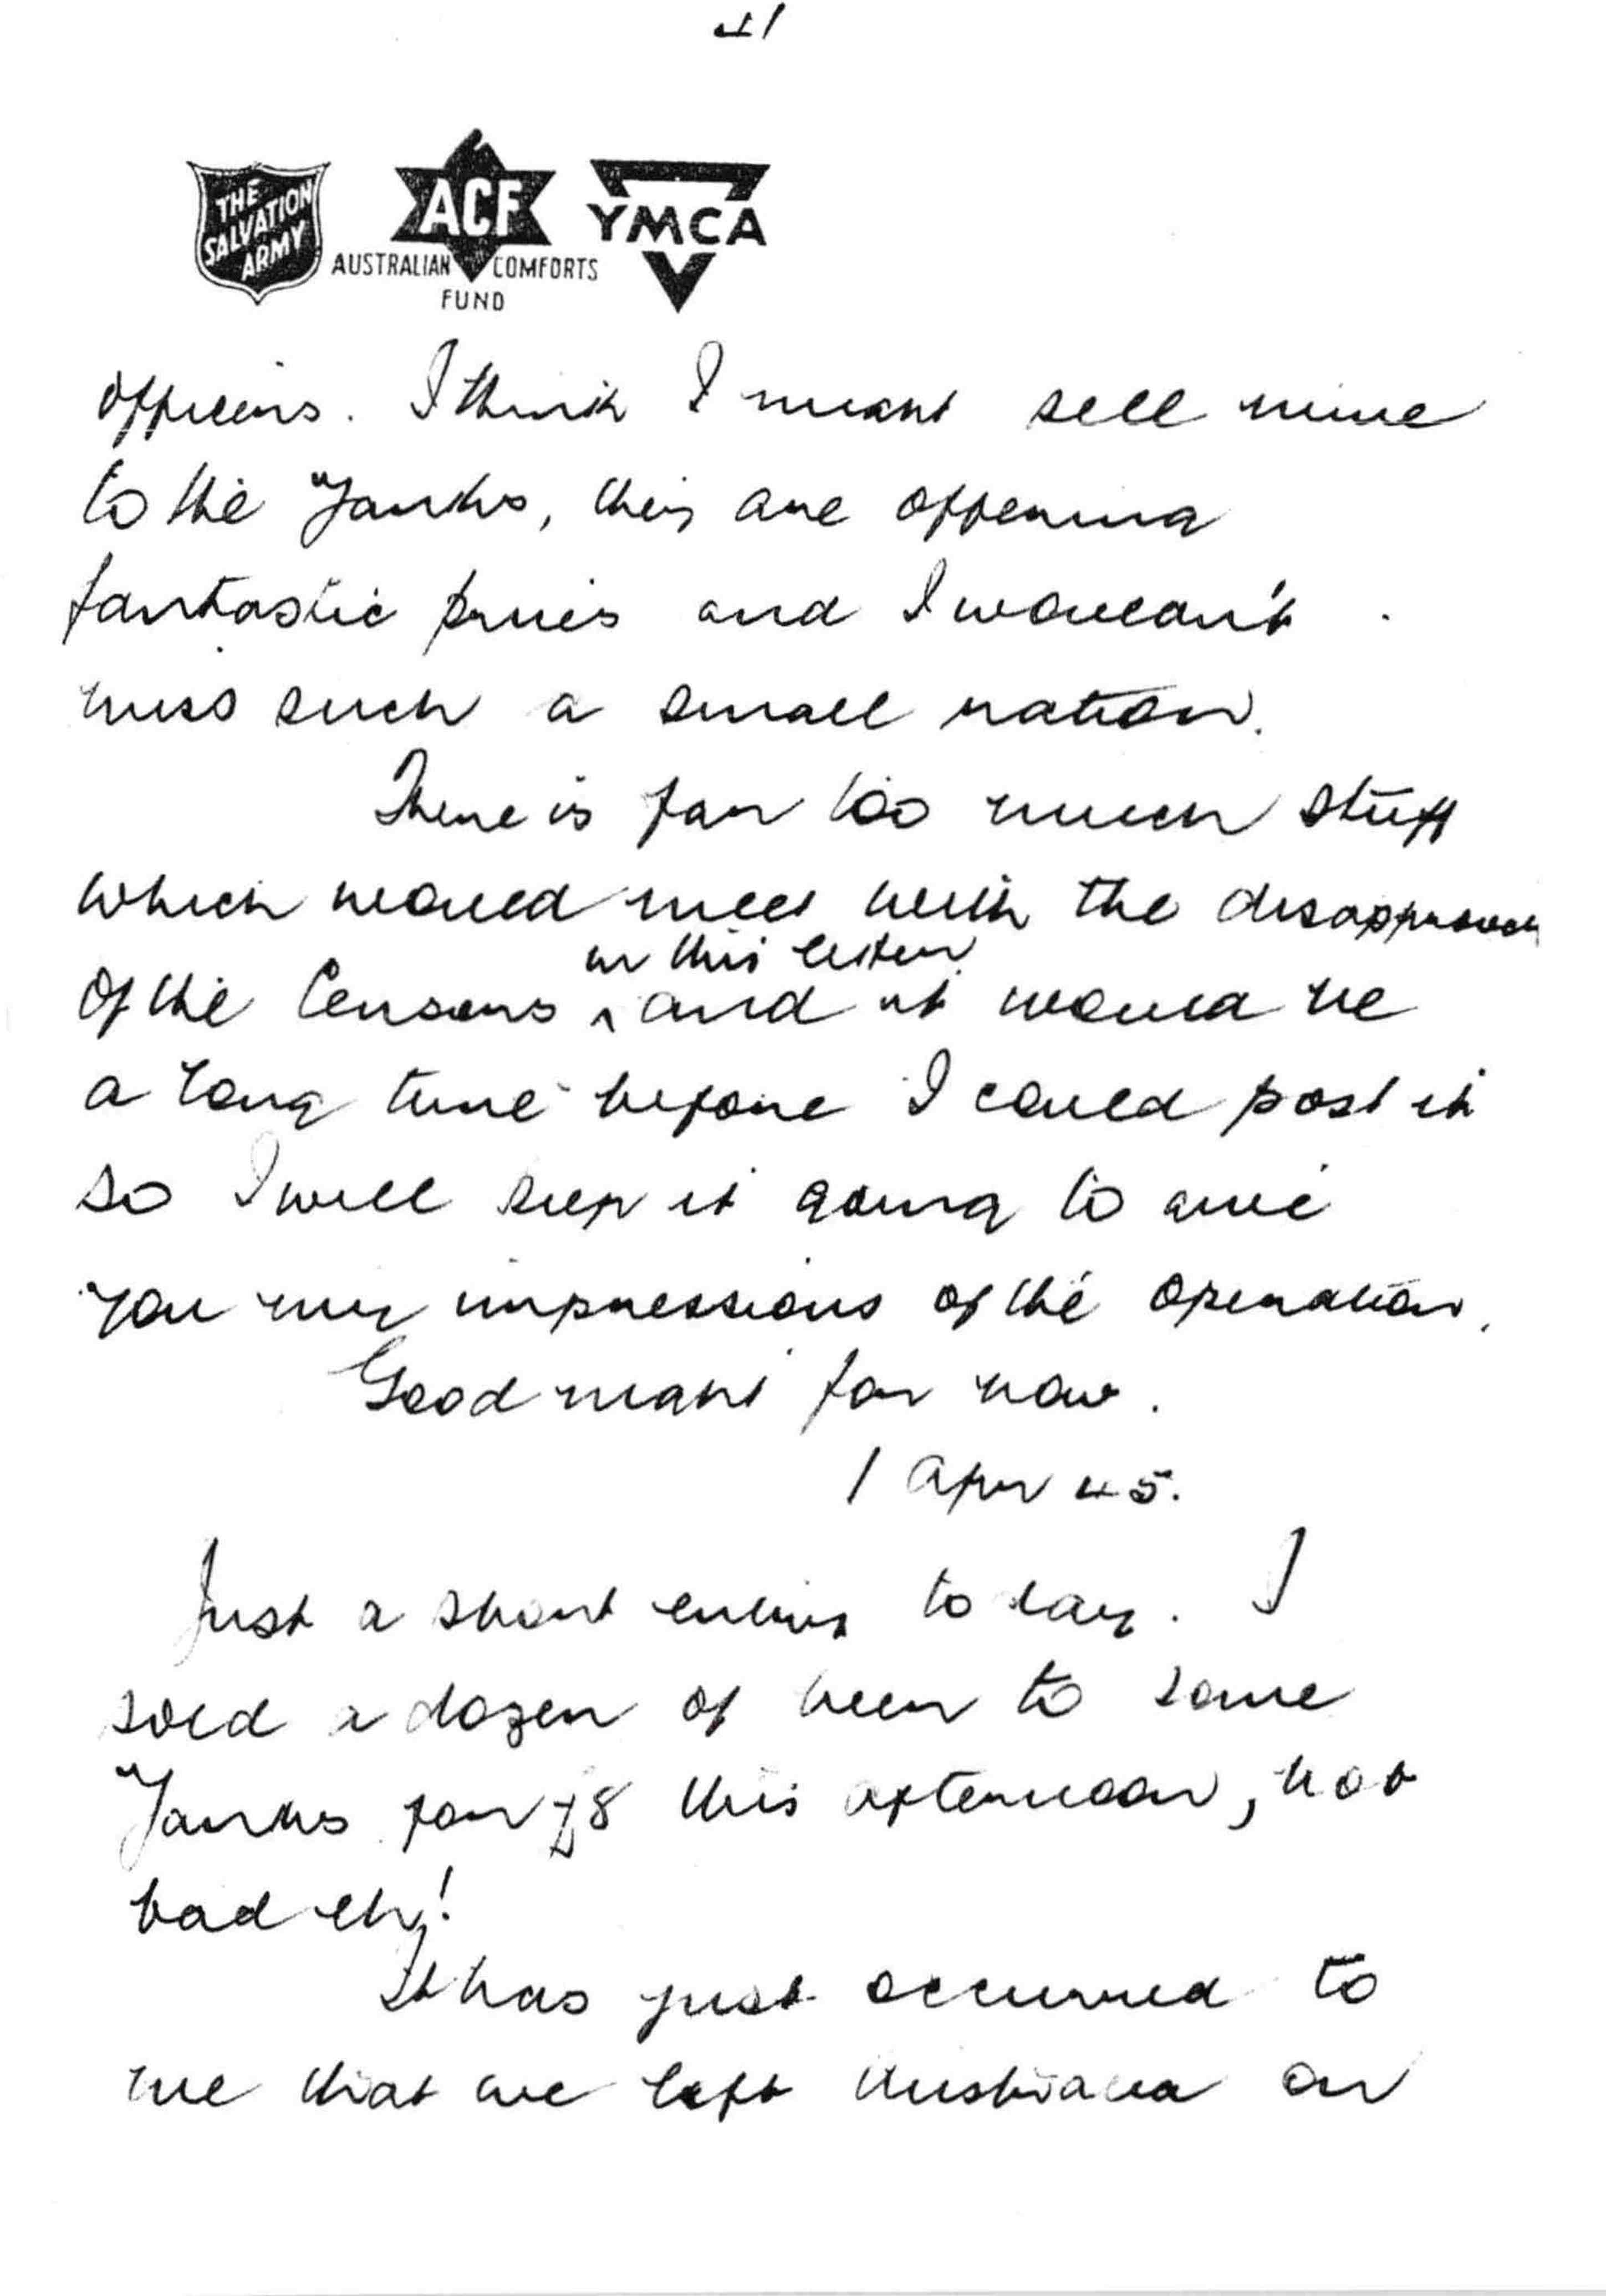 4/
THE SALVATION ARMY
ACF
AUSTRALIAN COMFORTS FUND
YMCA
officers. I think I might sell mine
to the Yanks, they are offering
fantastic prices and I wouldn't
miss such a small ration.
There is far too much stuff
which would meet with the disapproval
in this letter
of the Censors ^ and it would be
a long time before I could post it
so I will keep it going to give
you my impressions of the operation.
Good night for now.
1 Apr 45.
Just a short entry to day. I
sold a dozen of beer to some
Yanks for £8 this afternoon, not
bad eh!
It has just occurred to
me that we left Australia on